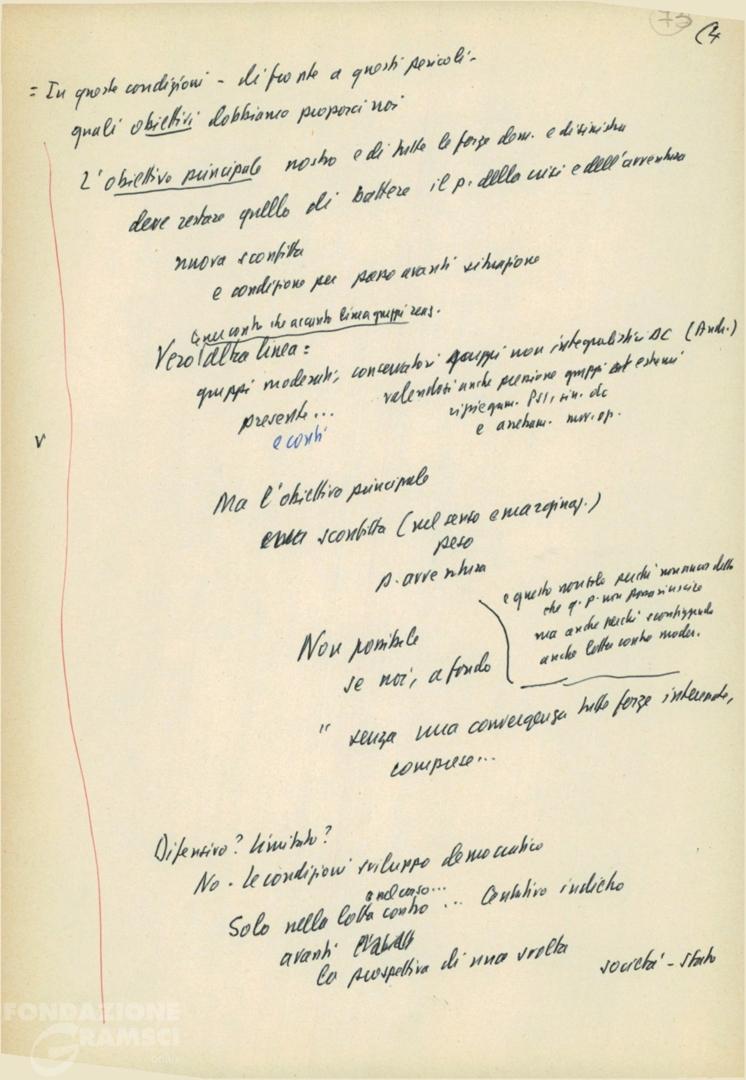 73
(4
= In queste condizioni - di fronte a questi pericoli -
quali obiettivi dobbiamo proporci noi
L'obiettivo principale nostro e di tutte le forze dem. e di sinistra
deve restare quello di battere il p. della crisi e dell'avventura
nuova sconfitta
e condizione per passo avanti situazione
che accanto linea gruppi reaz.
Vero! altra linea =
gruppi moderati, conservatori gruppi non integralisti DC (Andr.)
valendosi anche pressione gruppi estremi
presente... ripiegam. PSI, sin. dc
e conti e arretram. mov. op.
V
Ma l'obiettivo principale
sconfitta (nel senso emarginaz.)
peso
p. avventura
e questo non solo perché
che q. p. non possa riuscire
ma anche perché sconfiggendo
anche lotta contro moder.
Non possibile
se noi, a fondo
" senza una convergenza tutte forze interessate,
comprese...
Difensivo? Limitato?
No - le condizioni sviluppo democratico
e nel corso...
Solo nella lotta contro ... tentativo indietro
avanti
la prospettiva di una svolta società - stato
FONDAZIONE
GRAMSCI